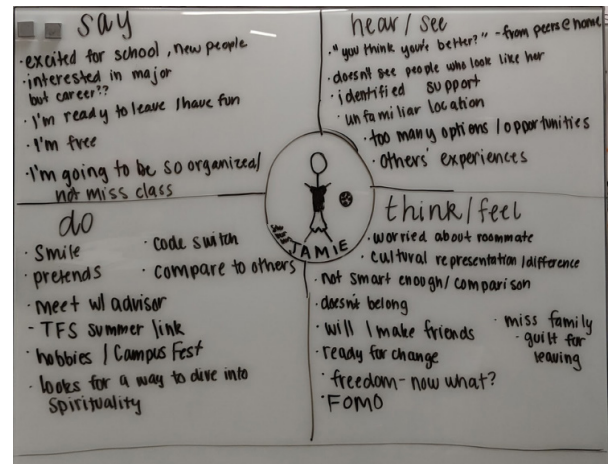 say
·excited for school, new people
·interested in major
but career??
·I'm ready to leave/have fun
·I'm free
·I'm going to be so organized/
not miss class
hear/see
·"you think you're better?" -from peers@home
·doesn't see people who look like her
·identified support
·unfamiliar location
·too many options/opportunities
·others' experiences
JAMIE
do
·Smile
·pretends
·code switch
·compare to others
·meet w/ advisor
-TFS summer link
·hobbies/Campus Fest
·looks for a way to dive into
Spirituality
think/feel
·worried about roommate
·cultural representation/difference
·not smart enough/comparison
·doesn't belong
·will I make friends
·ready for change
·freedom-now what?
·FOMO
·miss family
·guilt for
leaving